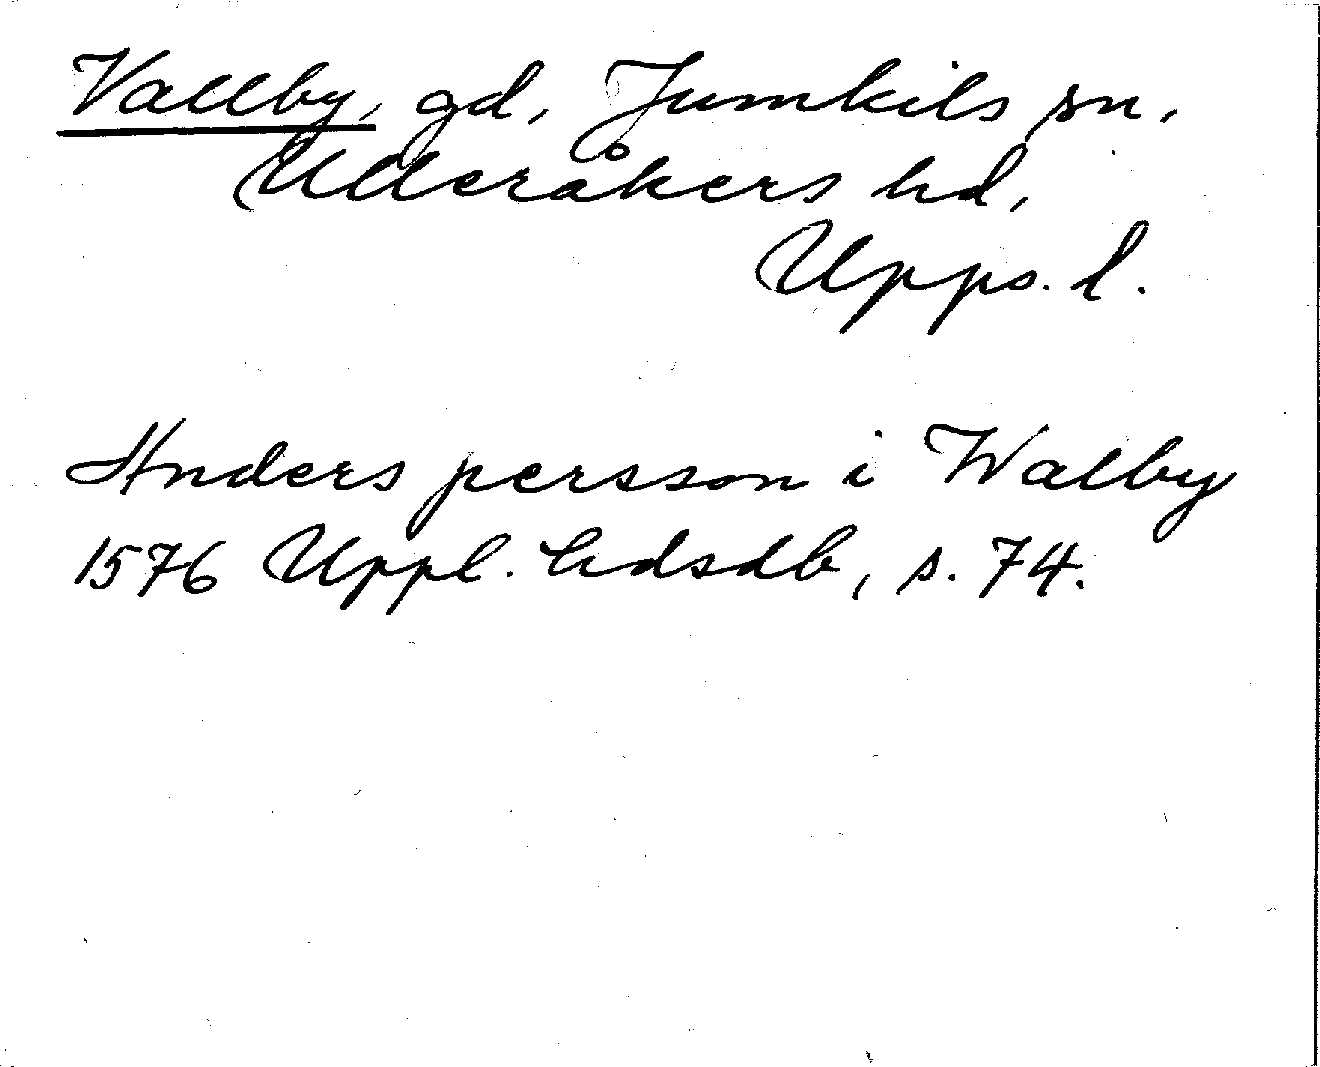 Vallby, gd, Jumkils sn,
Ulleråkers hd,
Upps. l.
Anders persson i Walby
1576 Uppl. hdsdb, s. 74.